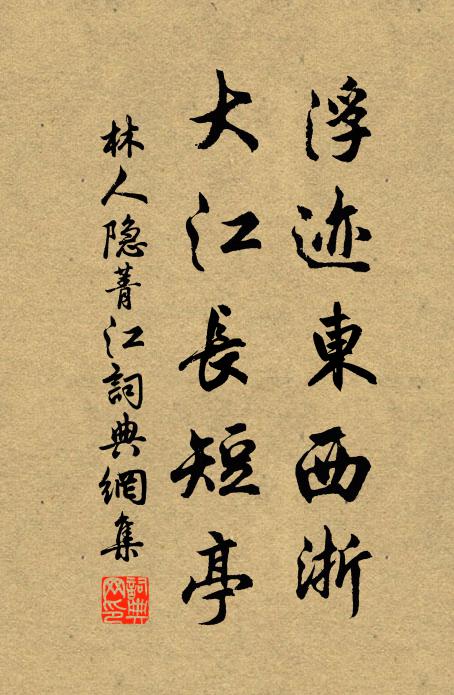 浮迹東西浙
大江長短亭
林人隐菁江詞典網集
詞典网印